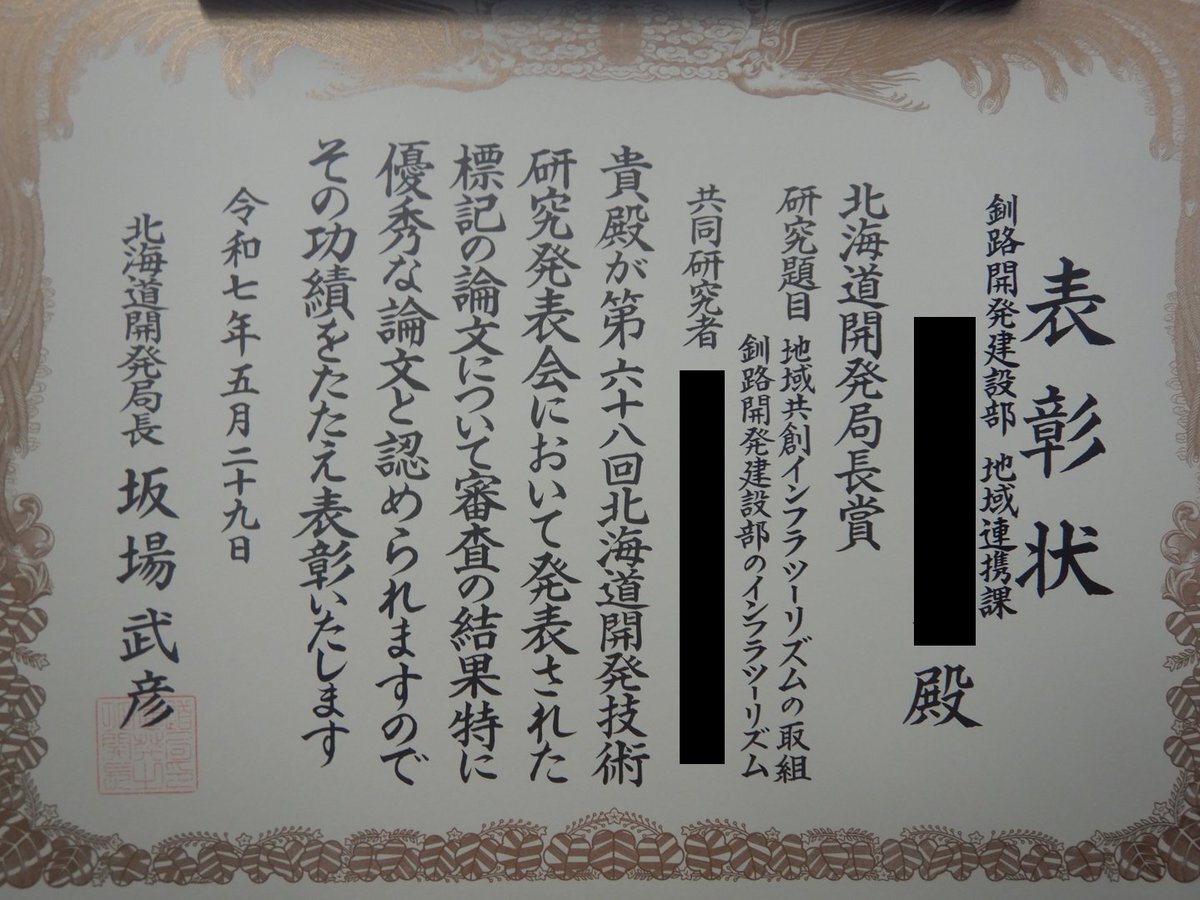 表彰状
釧路開発建設部 地域連携課
殿
北海道開発局長賞
研究題目 地域共創インフラツーリズムの取組
釧路開発建設部のインフラツーリズム
共同研究者
貴殿が第六十八回北海道開発技術
研究発表会において発表された
標記の論文について審査の結果特に
優秀な論文と認められますので
その功績をたたえ表彰いたします
令和七年五月二十九日
北海道開発局長 坂場武彦